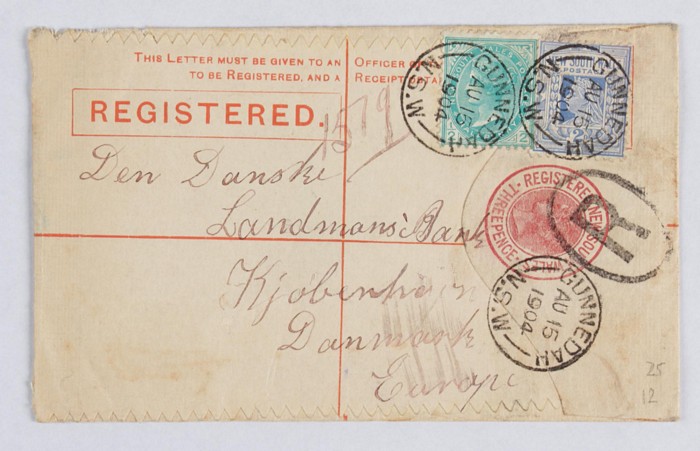 THIS LETTER MUST BE GIVEN TO AN OFFICER O
TO BE REGISTERED, AND A RECEIPT OBTA
REGISTERED.
GUNNEDAH
AU 15
1904
N.S.W
GUNNEDAH
AU 15
1904
N.S.W
Den Danske
Landmans Bank
Kjobenhavn
Danmark
Europe
REGISTERED NEW SOU WALES
THREEPENCE
R
GUNNEDAH
AU 15
1904
N.S.W
25
12